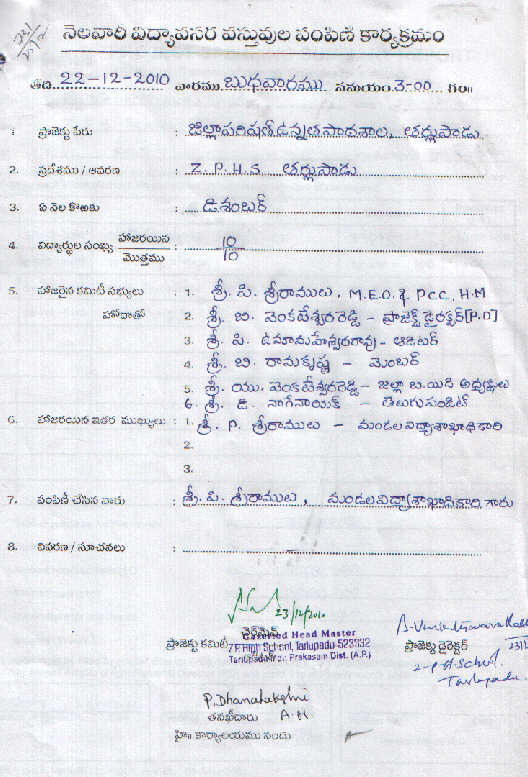 నెలవారి విద్యావసర వస్తువుల పంపిణి కార్యక్రమం
తేది. 22-12-2010 వారము. బుధవారము సమయం. 3-00 గం॥
1 ప్రాజెక్టు పేరు : జిల్లాపరిషత్ ఉన్నతపాఠశాల, తర్లుపాడు
2. ప్రదేశము / ఆవరణ : Z. P. H. S తర్లుపాడు
3. ఏ నెల కొఱకు : డిశంబర్
4. విద్యార్థుల సంఖ్య హాజరయిన / మొత్తము : 10/10
5. హాజరైన కమిటీ సభ్యులు : 1. శ్రీ. పి. శ్రీరాములు, M.E.O. & PCC, H.M
హోదాతో 2. శ్రీ. బి. వెంకటేశ్వరరెడ్డి - ప్రాజెక్ట్ డైరెక్టర్ [P.D]
3. శ్రీ. పి. ఉమామహేశ్వరరావు - ఆడిటర్
4. శ్రీ. బి. రామకృష్ణ - మెంబర్
5. శ్రీ. యు. వెంకటేశ్వరరెడ్డి - జిల్లా అధ్యక్షులు
6. శ్రీ. డి. నాగేనాయక్ - తెలుగుపండిట్
6. హాజరయిన ఇతర ముఖ్యులు : 1. శ్రీ. P. శ్రీరాములు - మండల విద్యాశాఖాధికారి
2.
3.
7. పంపిణీ చేసిన వారు : శ్రీ. పి. శ్రీరాములు, మండలవిద్యాశాఖాధికారి గారు
8. వివరణ / సూచనలు :
23/12/2010
ప్రాజెక్టు కమిటీ ఛైర్మన్
Gazetted Head Master
Z P High School, Tarlupadu-523332
Prakasam Dist. (A.P.)
ప్రాజెక్టు డైరెక్టర్
Z-P H. School
Tarlupadu.
P. Dhanalakshmi
తనఖీదారు A.H
హె॥ కార్యాలయము నందు